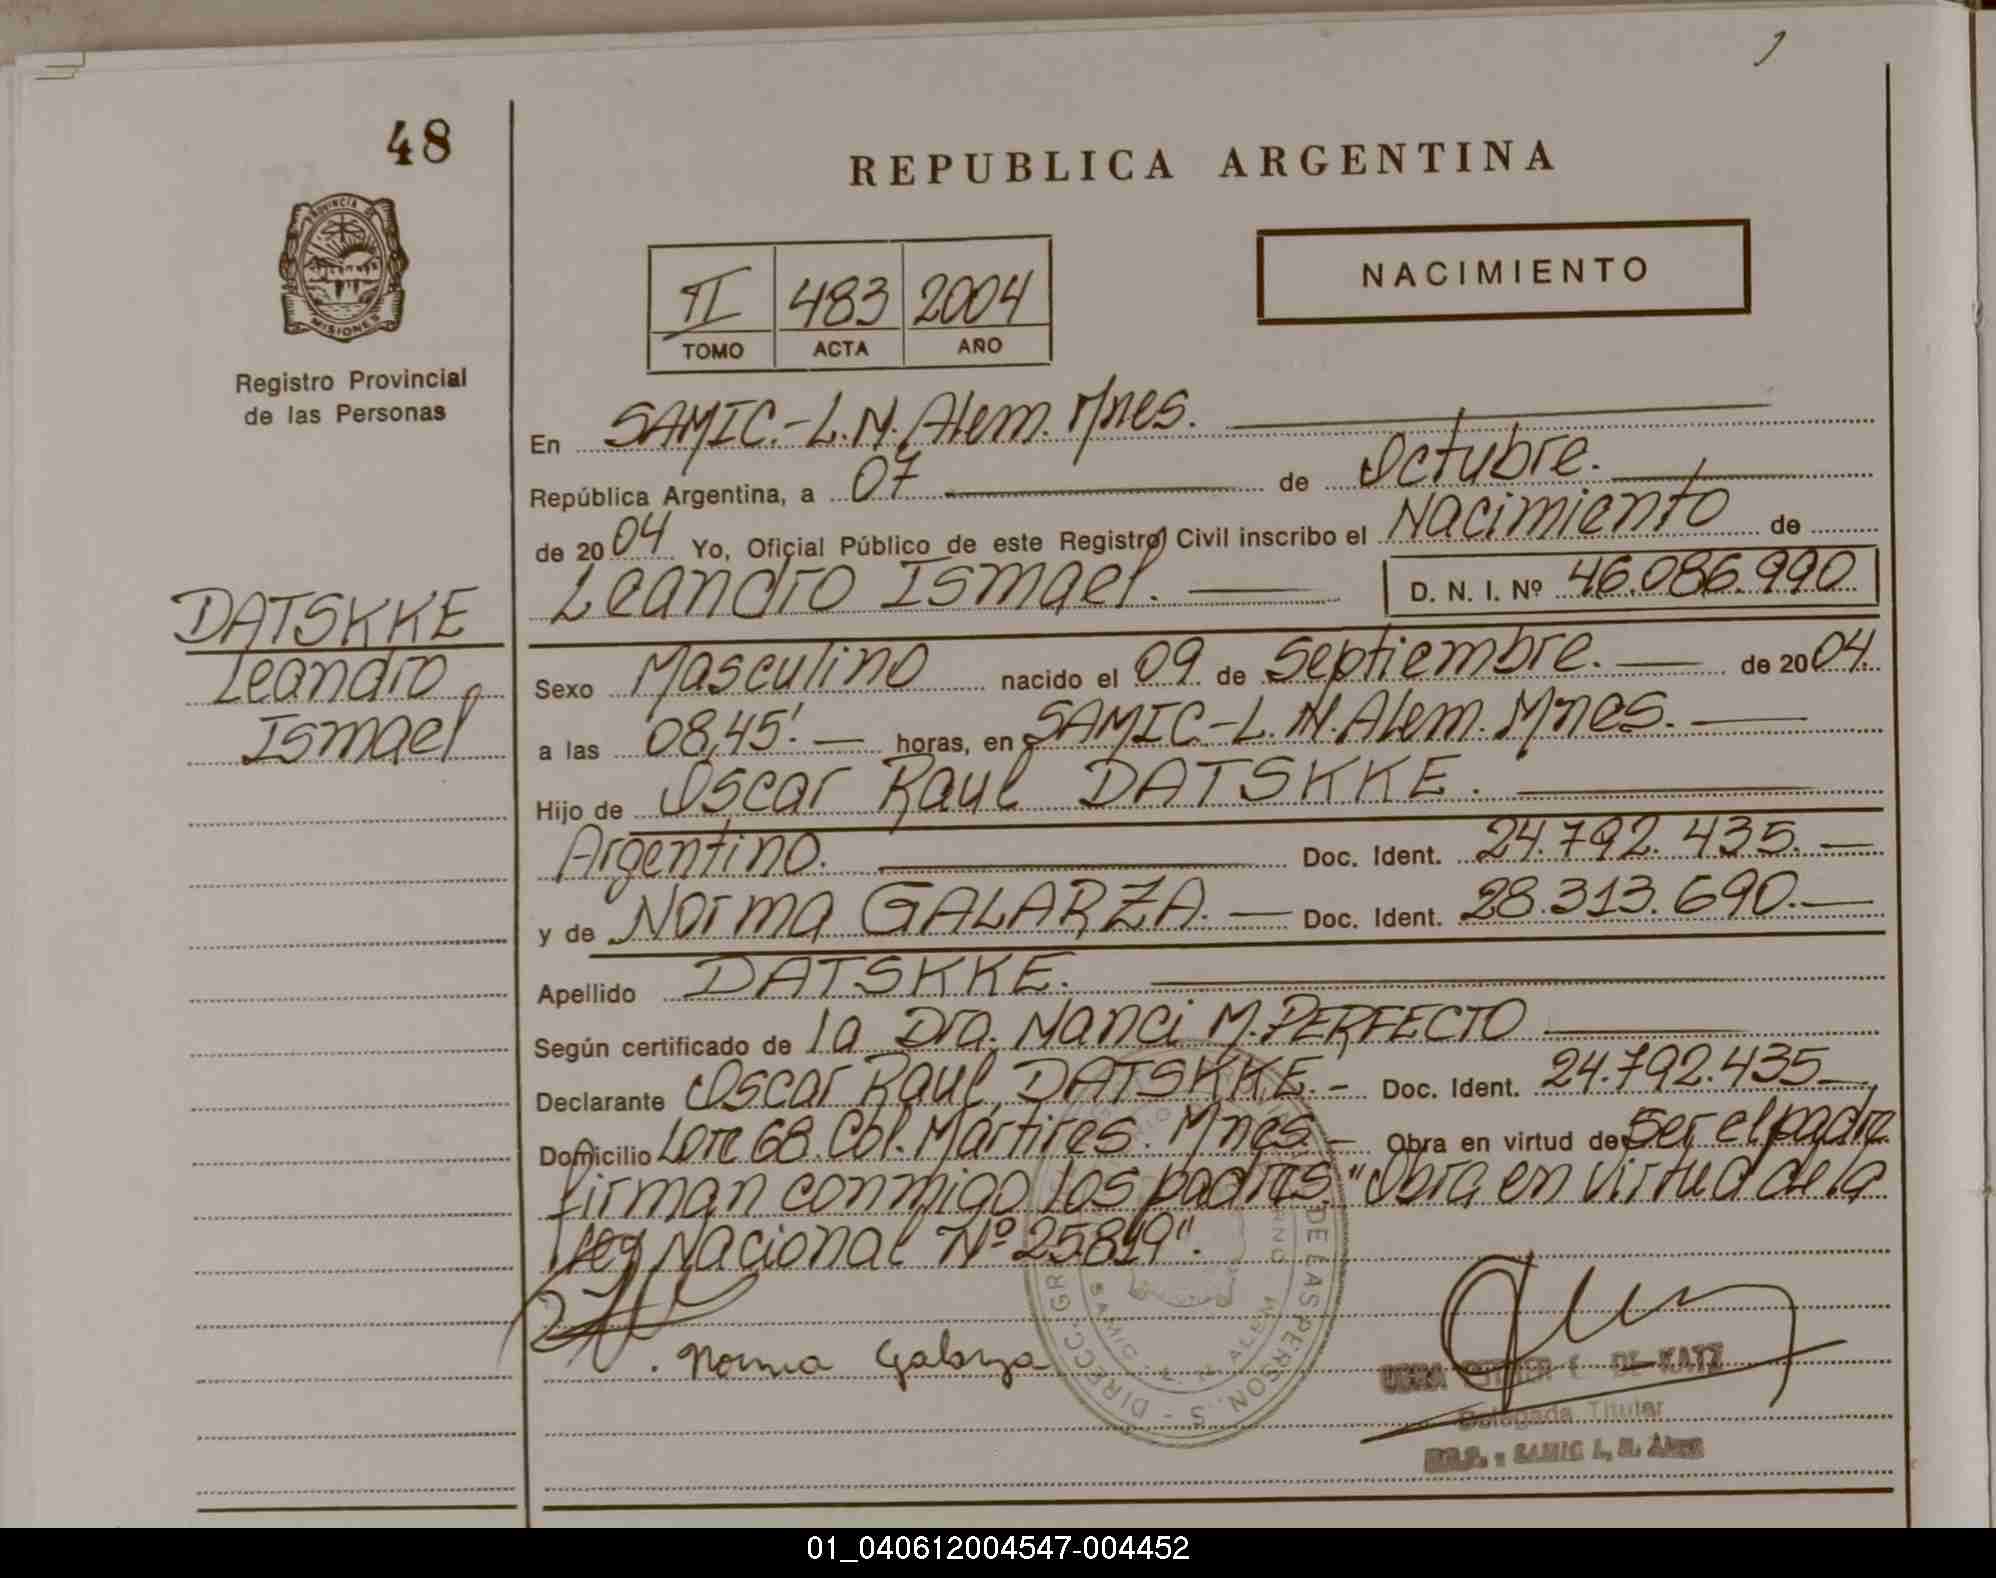 48
REPUBLICA ARGENTINA
PROVINCIA DE
MISIONES
Registro Provincial
de las Personas
II 483 2004
TOMO ACTA AÑO
NACIMIENTO
En SAMIC.-L.N.Alem. Mnes.
República Argentina, a 07 de Octubre.
de 2004 Yo, Oficial Público de este Registro Civil inscribo el Nacimiento de
Leandro Ismael. D. N. I. Nº 46.086.990
DATSKKE
Leandro
Ismael
Sexo Masculino nacido el 09 de Septiembre. de 2004.
a las 08,45'. horas, en SAMIC-L.N.Alem. Mnes.
Hijo de Oscar Raul DATSKKE.
Argentino. Doc. Ident. 24.792.435.
y de Norma GALARZA. Doc. Ident. 28.313.690.
Apellido DATSKKE.
Según certificado de la Dra. Nanci M. PERFECTO
Declarante Oscar Raul DATSKKE.- Doc. Ident. 24.792.435
Domicilio Lote 68. Col. Mártires. Mnes.- Obra en virtud de Ser el padre
firman conmigo los padres. "Obra en virtud de la
Ley Nacional Nº 25819".
Norma Galarza
DE LAS PERSON
SAMIC L. N. ALEM
DIRECC. GR
DE KATZ
Delegada Titular
SAMIC L. N.
01_040612004547-004452